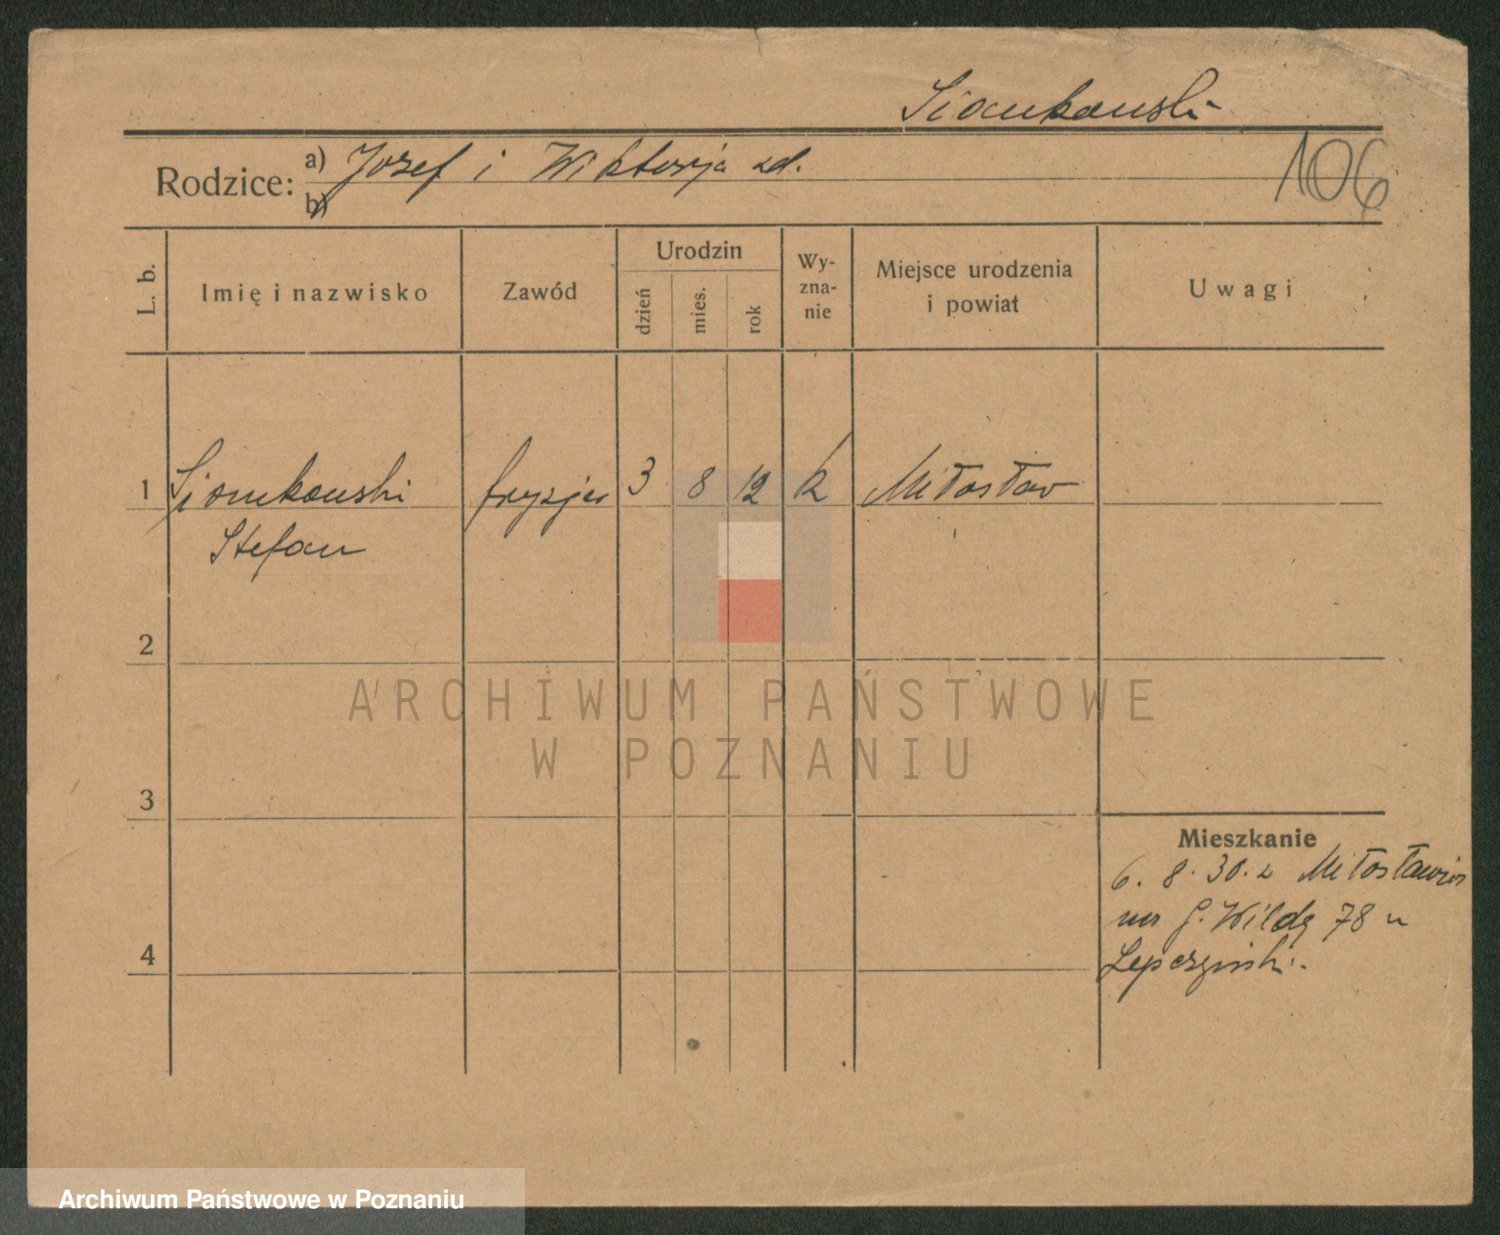 Siomkowski
Rodzice: a) Jozef i Wiktorja zd.
b)
106
L. b.
Imię i nazwisko
Zawód
Urodzin
dzień
mies.
rok
Wy-
zna-
nie
Miejsce urodzenia
i powiat
Uwagi
1 Siomkowski fryzjer 3 8 12 k Miłosław
Stefan
2
ARCHIWUM PAŃSTWOWE
W POZNANIU
3
Mieszkanie
6. 8. 30. z Miłosławia
na G. Wildę 78 u
4
Archiwum Państwowe w Poznaniu